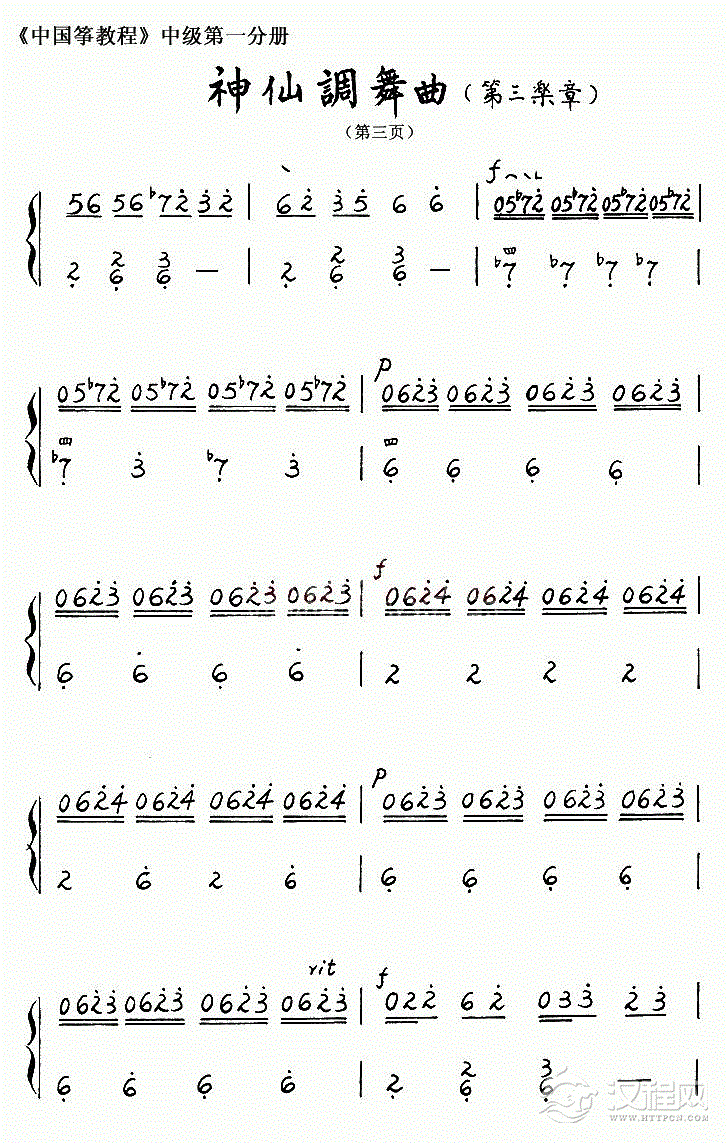 《中国筝教程》中级第一分册
神仙調舞曲(第三楽章)
(第三页)
f
56 56 ♭72̇ 3̇2̇ | 62̇ 3̇5̇ 6 6̇ | 05♭72̇ 05♭72̇ 05♭72̇ 05♭72̇ |
2̣ 2/6̣ 3/6̣ — | 2̣ 2/6̣ 3/6̣ — | 四 ♭7̣ ♭7̣ ♭7̣ ♭7̣ |
p
05♭72̇ 05♭72̇ 05♭72̇ 05♭72̇ | 062̇3̇ 062̇3̇ 062̇3̇ 062̇3̇ |
四 ♭7̣ 3̇ ♭7̣ 3̇ | 四 6̣ 6̣ 6̣ 6̣ |
f
062̇3̇ 062̇3̇ 062̇3̇ 062̇3̇ | 062̇4̇ 062̇4̇ 062̇4̇ 062̇4̇ |
6̣ 6̇ 6̣ 6̇ | 2 2 2 2 |
p
062̇4̇ 062̇4̇ 062̇4̇ 062̇4̇ | 062̇3̇ 062̇3̇ 062̇3̇ 062̇3̇ |
2 6̇ 2 6̇ | 6̣ 6̣ 6̣ 6̣ |
rit f
062̇3̇ 062̇3̇ 062̇3̇ 062̇3̇ | 022̇ 62̇ 033̇ 2̇3̇ |
6̣ 6̣ 6̣ 6̣ | 2̣ 2/6̣ 3/6̣ — |
汉程网
WWW.HTTPCN.COM